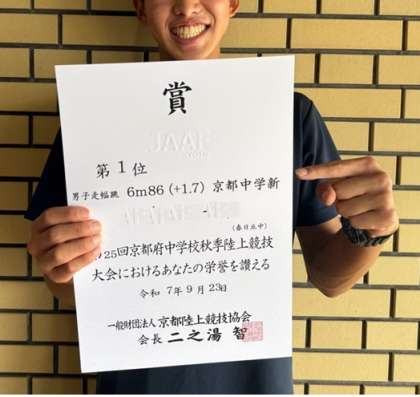 賞
JAAF
第1位
男子走幅跳 6m86 (+1.7) 京都中学新
(春日丘中)
25回京都府中学校秋季陸上競技
大会におけるあなたの栄誉を讃える
令和 7年 9月 23日
一般財団法人 京都陸上競技協会
会長 二之湯 智